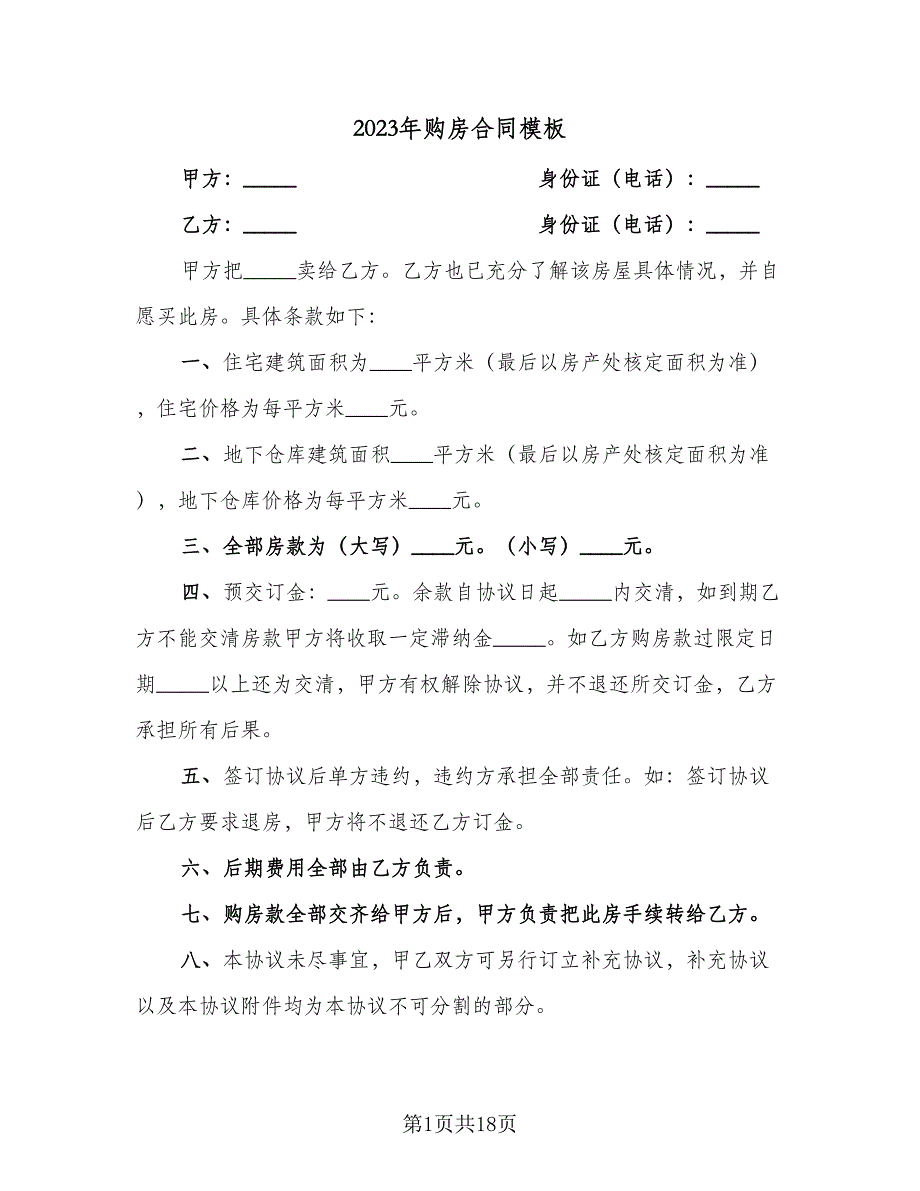 2023年购房合同模板
甲方：_____ 身份证（电话）：_____
乙方：_____ 身份证（电话）：_____
甲方把_____卖给乙方。乙方也已充分了解该房屋具体情况，并自
愿买此房。具体条款如下：
一、住宅建筑面积为____平方米（最后以房产处核定面积为准）
，住宅价格为每平方米____元。
二、地下仓库建筑面积____平方米（最后以房产处核定面积为准
），地下仓库价格为每平方米____元。
三、全部房款为（大写）____元。（小写）____元。
四、预交订金：____元。余款自协议日起_____内交清，如到期乙
方不能交清房款甲方将收取一定滞纳金_____。如乙方购房款过限定日
期_____以上还为交清，甲方有权解除协议，并不退还所交订金，乙方
承担所有后果。
五、签订协议后单方违约，违约方承担全部责任。如：签订协议
后乙方要求退房，甲方将不退还乙方订金。
六、后期费用全部由乙方负责。
七、购房款全部交齐给甲方后，甲方负责把此房手续转给乙方。
八、本协议未尽事宜，甲乙双方可另行订立补充协议，补充协议
以及本协议附件均为本协议不可分割的部分。
第1页共18页